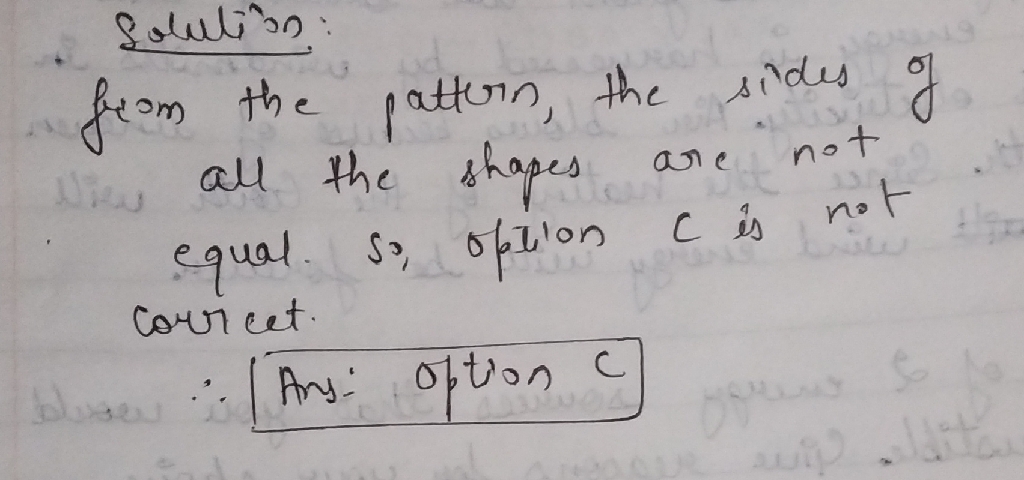 Solution:
from the pattern, the sides of
all the shapes are not
equal. So, option C is not
correct.
∴ Ans: option C